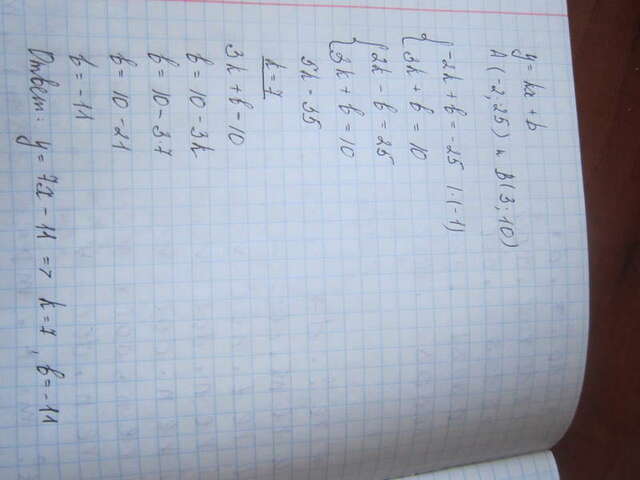 y = kx + b
A (-2; 25) и B(3; 10)
{-2k + b = -25 |·(-1)
{3k + b = 10
{2k - b = 25
{3k + b = 10
5k = 35
k = 7
3k + b = 10
b = 10 - 3k
b = 10 - 3·7
b = 10 - 21
b = -11
Ответ: y = 7x - 11 => k = 7, b = -11